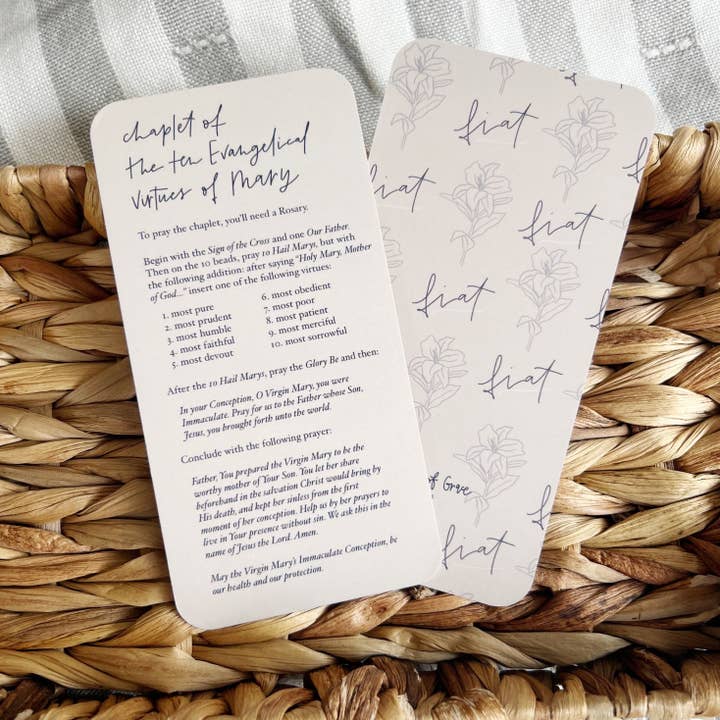 chaplet of
the ten Evangelical
virtues of Mary
To pray the chaplet, you'll need a Rosary.
Begin with the Sign of the Cross and one Our Father.
Then on the 10 beads, pray 10 Hail Marys, but with
the following addition: after saying "Holy Mary, Mother
of God..." insert one of the following virtues:
1. most pure
2. most prudent
3. most humble
4. most faithful
5. most devout
6. most obedient
7. most poor
8. most patient
9. most merciful
10. most sorrowful
After the 10 Hail Marys, pray the Glory Be and then:
In your Conception, O Virgin Mary, you were
Immaculate. Pray for us to the Father whose Son,
Jesus, you brought forth unto the world.
Conclude with the following prayer:
Father, You prepared the Virgin Mary to be the
worthy mother of Your Son. You let her share
beforehand in the salvation Christ would bring by
His death, and kept her sinless from the first
moment of her conception. Help us by her prayers to
live in Your presence without sin. We ask this in the
name of Jesus the Lord. Amen.
May the Virgin Mary's Immaculate Conception, be
our health and our protection.
fiat
fiat
fiat
fiat
fiat
fiat
fiat
of Grace
fiat